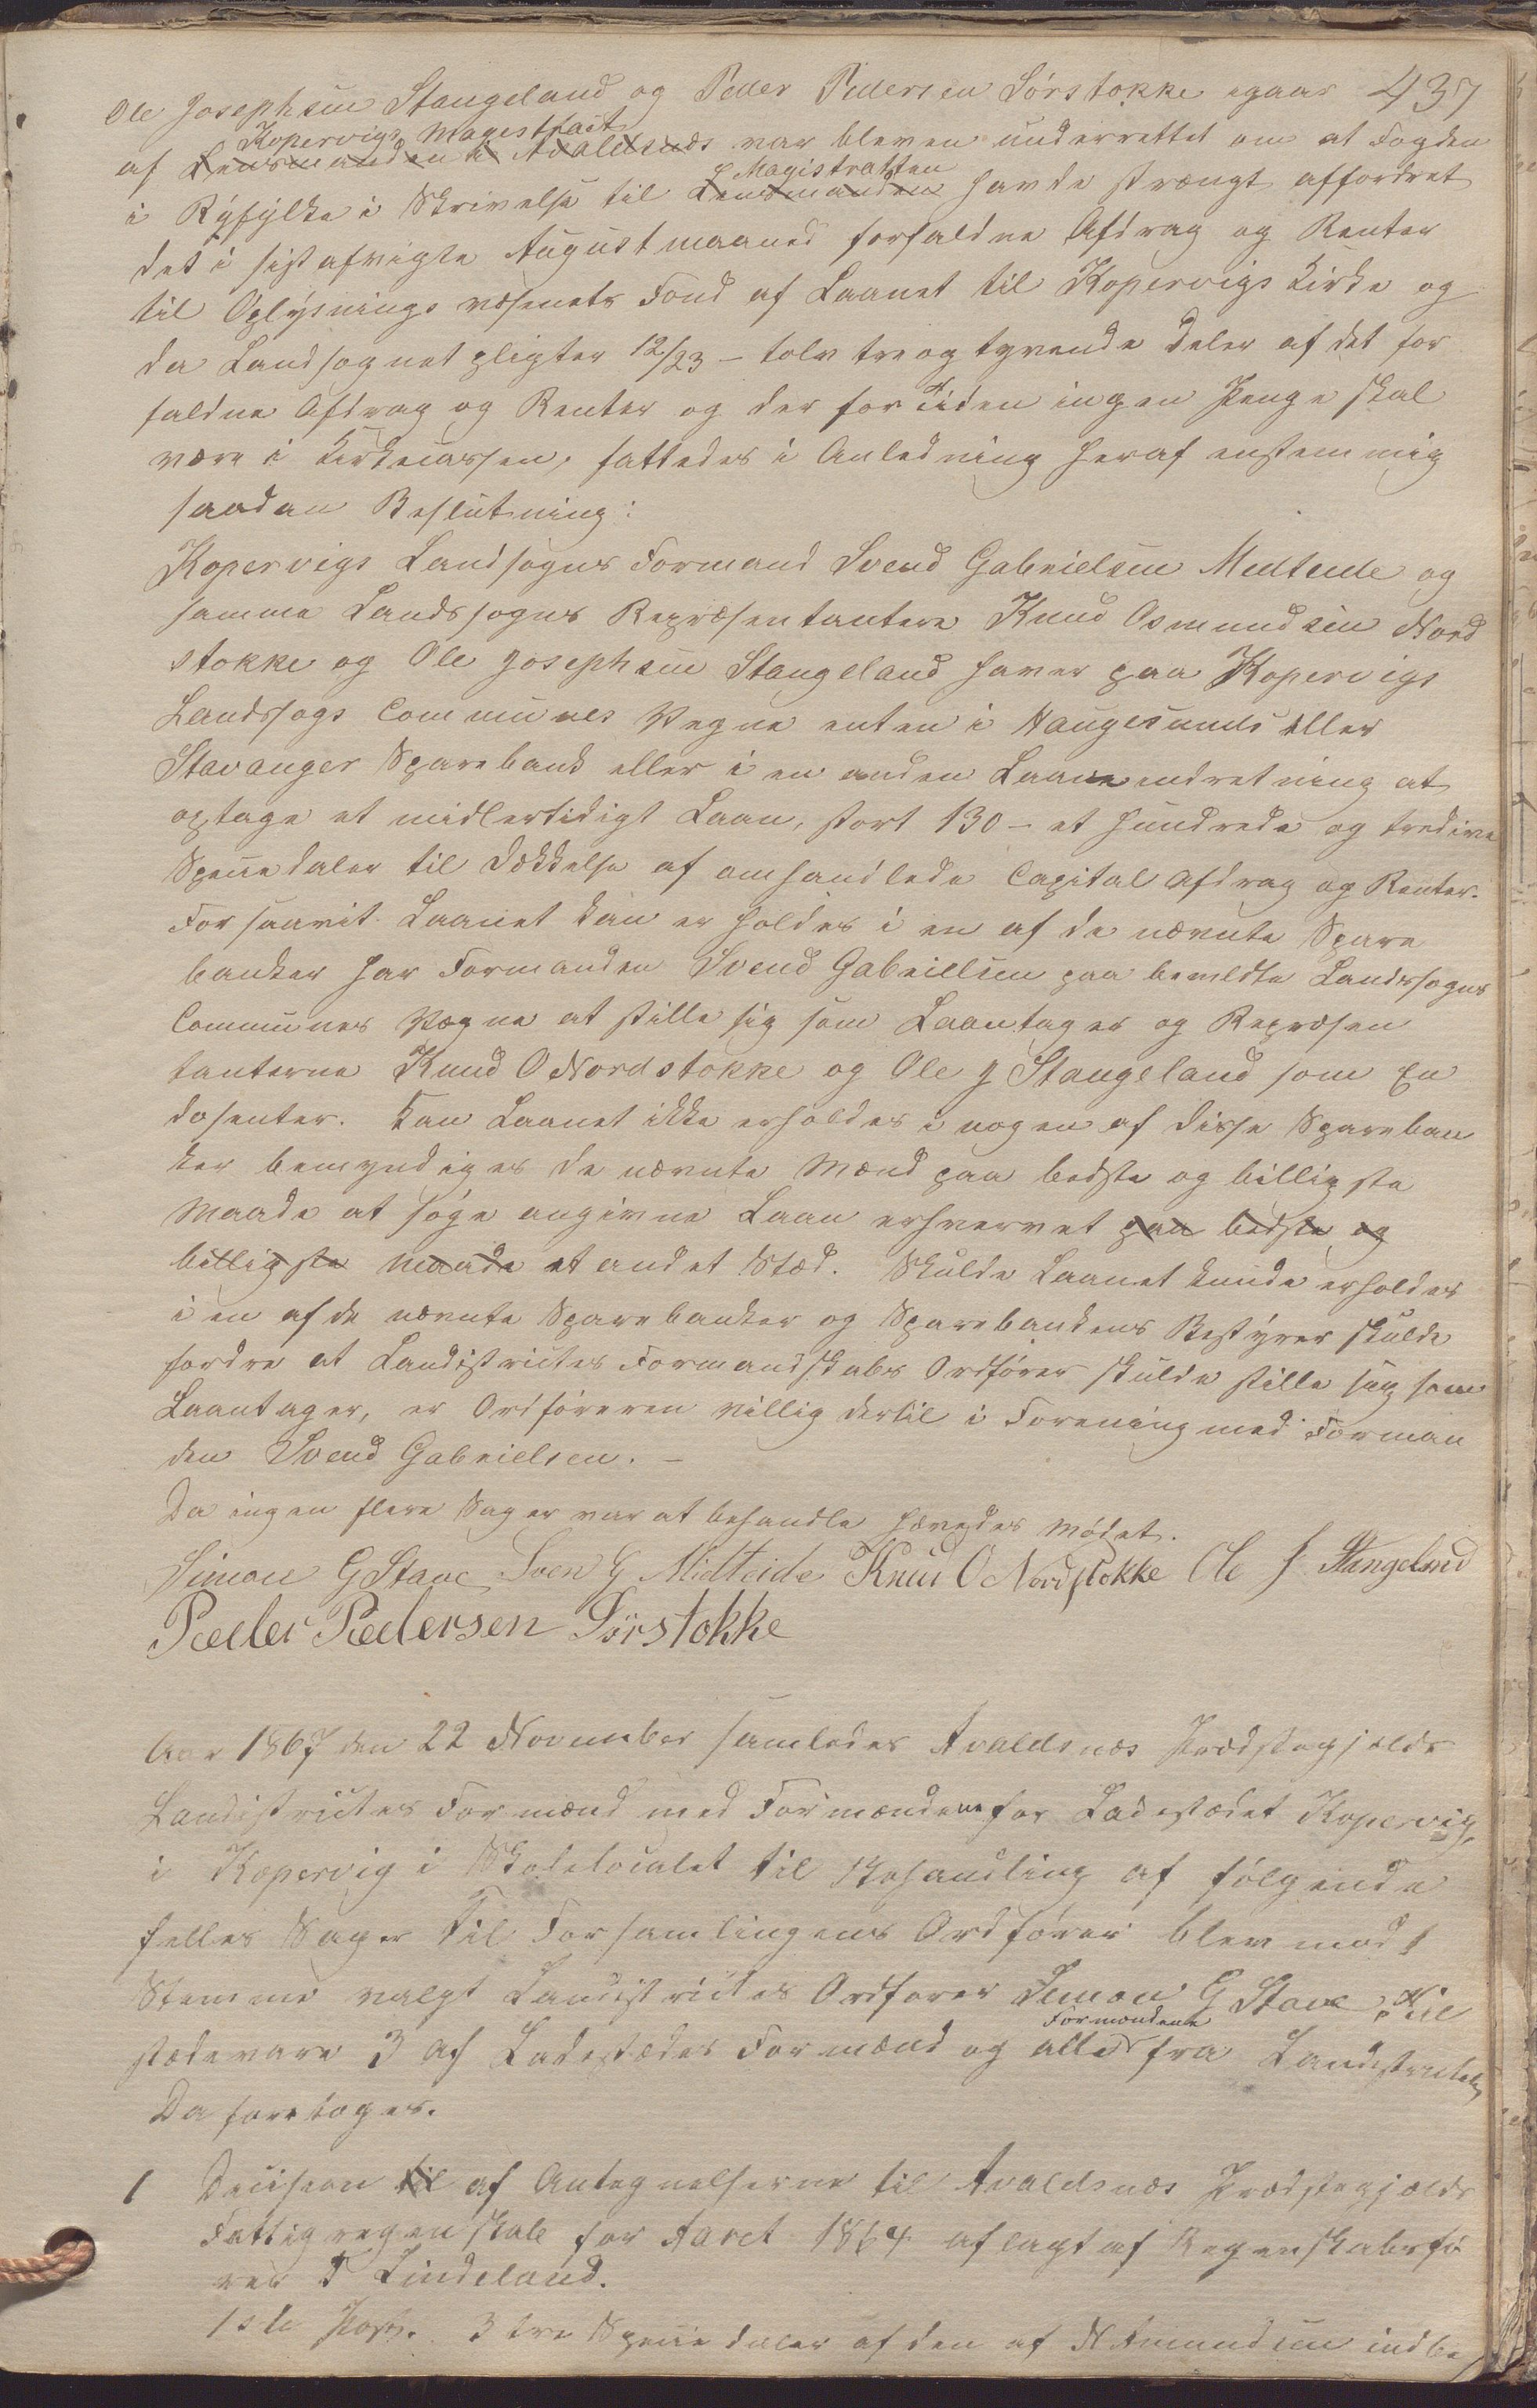 437
Ole Josephsen Stangeland og Peder Pedersen Sørstokke igaar
Kopervigs Magistrait
af Lensmanden i Avaldsnæs var bleven underrettet om at Fogden
Magistratten
i Ryfylke i Skrivelse til Lensmanden havde strængt affordret
det i sistafvigte August maaned forfaldne Afdrag og Renter
til Oplysningsvæsenets Fond af Laanet til Kopervigs Kirke og
da Landsognet pligter 12/23 - tolv treogtyvende deler af det for
faldne Afdrag og Renter og der for Tiden ingen Penge skal
være i Kirkecassen, fattedes i Anledning heraf enstemmig
saadan Beslutning:
Kopervigs Landsogns Formand Svend Gabrielsen Medteide og
samme Landssogns Repræsentantere Knud Osmundsen Nord
stokke og Ole Josephsen Stangeland haver paa Kopervigs
Landssogs Communes Vegne enten i Haugesunds eller
Stavanger Sparebank eller i en anden Laaneindretning at
optage et midlertidigt Laan, stort 130 - et hundrede og tredive
Speciedaler til Dækkelse af omhandlede Capital Afdrag og Renter.
Forsaavit Laanet kan erholdes i en af de nævnte Spare
banker har Formanden Svend Gabrielsen paa bemeldte Landssogns
Communes Vegne at stille sig som Laantager og Repræsen
tanterne Knud O Nordstokke og Ole J Stangeland som En
dosenter. Kan Laanet ikke erholdes i nogen af disse Spareban
ker bemyndiges de nævnte Mænd paa bedste og billigste
Maade at søge angivne Laan erhvervet paa bedste og
billigste Maade et andet Sted. Skulde Laanet kunde erholdes
i en af de nævnte Sparebanker og Sparebankens Bestyrer skulde
fordre at Landistrictes Formandskabs Ordfører skulde stille sig som
Laantager, er Ordføreren villig dertil i Forening med Forman
den Svend Gabrielsen. -
Da ingen flere Sager var at behandle hævedes Mødet.
Simon G Stave Sven G Midteide Knud O Nordstokke Ole J. Stangeland
Peder Pedersen Sørstokke
Aar 1867 den 22 November samledes Avaldsnæs Prædstegjelds
Landistrictes Formænd med Formændene for Ladestædet Kopervig,
i Kopervig i Skolelocalet til Behandling af følgende
felles Sager Til Forsamlingens Ordfører blev mod 1
Stemme valgt Landistrictes Ordfører Simon G Stave, Til
Formændene
stædevare 3 af Ladestædes Formænd og alle fra Landistrictet,
Da foretoges.
1 Decision til af Antegnelserne til Avaldsnæs Prædstegjælds
Fattigregenskab for Aaret 1864 aflagt af Regenskabsfø
rer T Lindeland.
1ste Post. 3 tre Speciedaler af den af N Amundsen indbe